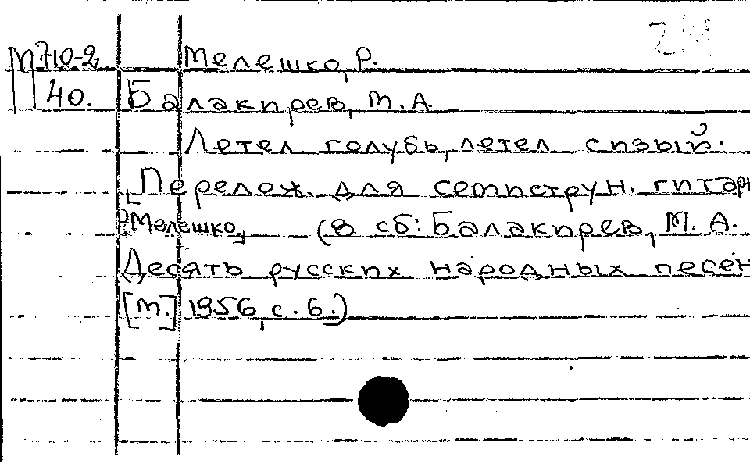 М710-2 Мелешко, Р.
40. Балакирев, М.А.
Летел голубь, летел сизый.
[Перелож. для семиструн. гитары
Р. Мелешко, (в сб: Балакирев, М. А.
Десять русских народных песен
[М.] 1956, с. 6.)